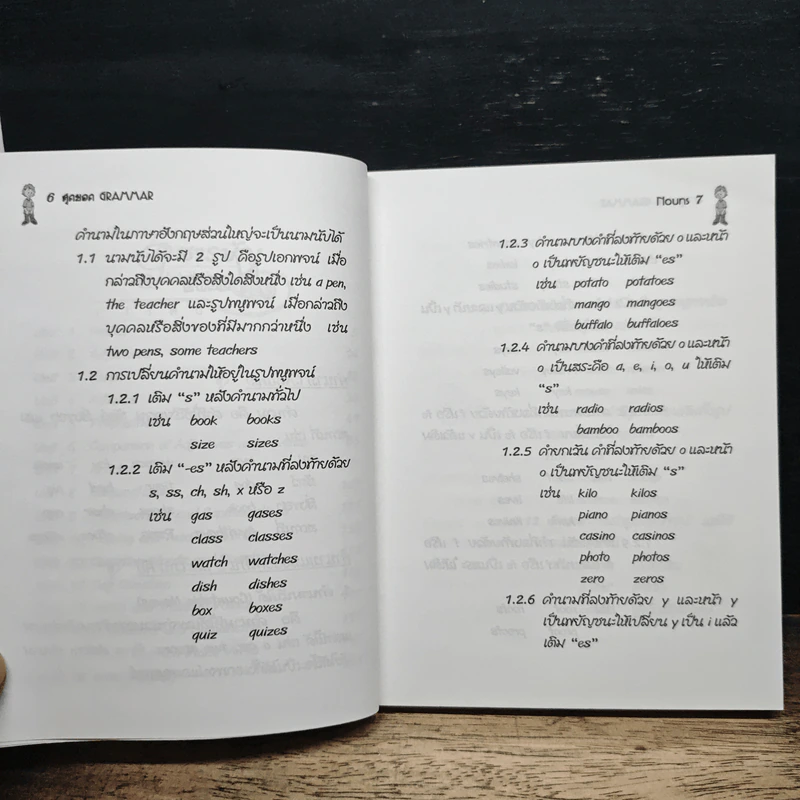 6 สุดยอด GRAMMAR
คำนามในภาษาอังกฤษส่วนใหญ่จะเป็นนามนับได้
1.1 นามนับได้จะมี 2 รูป คือรูปเอกพจน์ เมื่อ
กล่าวถึงบุคคลหรือสิ่งใดสิ่งหนึ่ง เช่น a pen,
the teacher และรูปพหูพจน์ เมื่อกล่าวถึง
บุคคลหรือสิ่งของที่มีมากกว่าหนึ่ง เช่น
two pens, some teachers
1.2 การเปลี่ยนคำนามให้อยู่ในรูปพหูพจน์
1.2.1 เติม “s” หลังคำนามทั่วไป
เช่น book books
size sizes
1.2.2 เติม “-es” หลังคำนามที่ลงท้ายด้วย
s, ss, ch, sh, x หรือ z
เช่น gas gases
class classes
watch watches
dish dishes
box boxes
quiz quizes
Nouns 7
1.2.3 คำนามบางคำที่ลงท้ายด้วย o และหน้า
o เป็นพยัญชนะให้เติม “es”
เช่น potato potatoes
mango mangoes
buffalo buffaloes
1.2.4 คำนามบางคำที่ลงท้ายด้วย o และหน้า
o เป็นสระคือ a, e, i, o, u ให้เติม
“s”
เช่น radio radios
bamboo bamboos
1.2.5 คำยกเว้น คำที่ลงท้ายด้วย o และหน้า
o เป็นพยัญชนะให้เติม “s”
เช่น kilo kilos
piano pianos
casino casinos
photo photos
zero zeros
1.2.6 คำนามที่ลงท้ายด้วย y และหน้า y
เป็นพยัญชนะให้เปลี่ยน y เป็น i แล้ว
เติม “es”